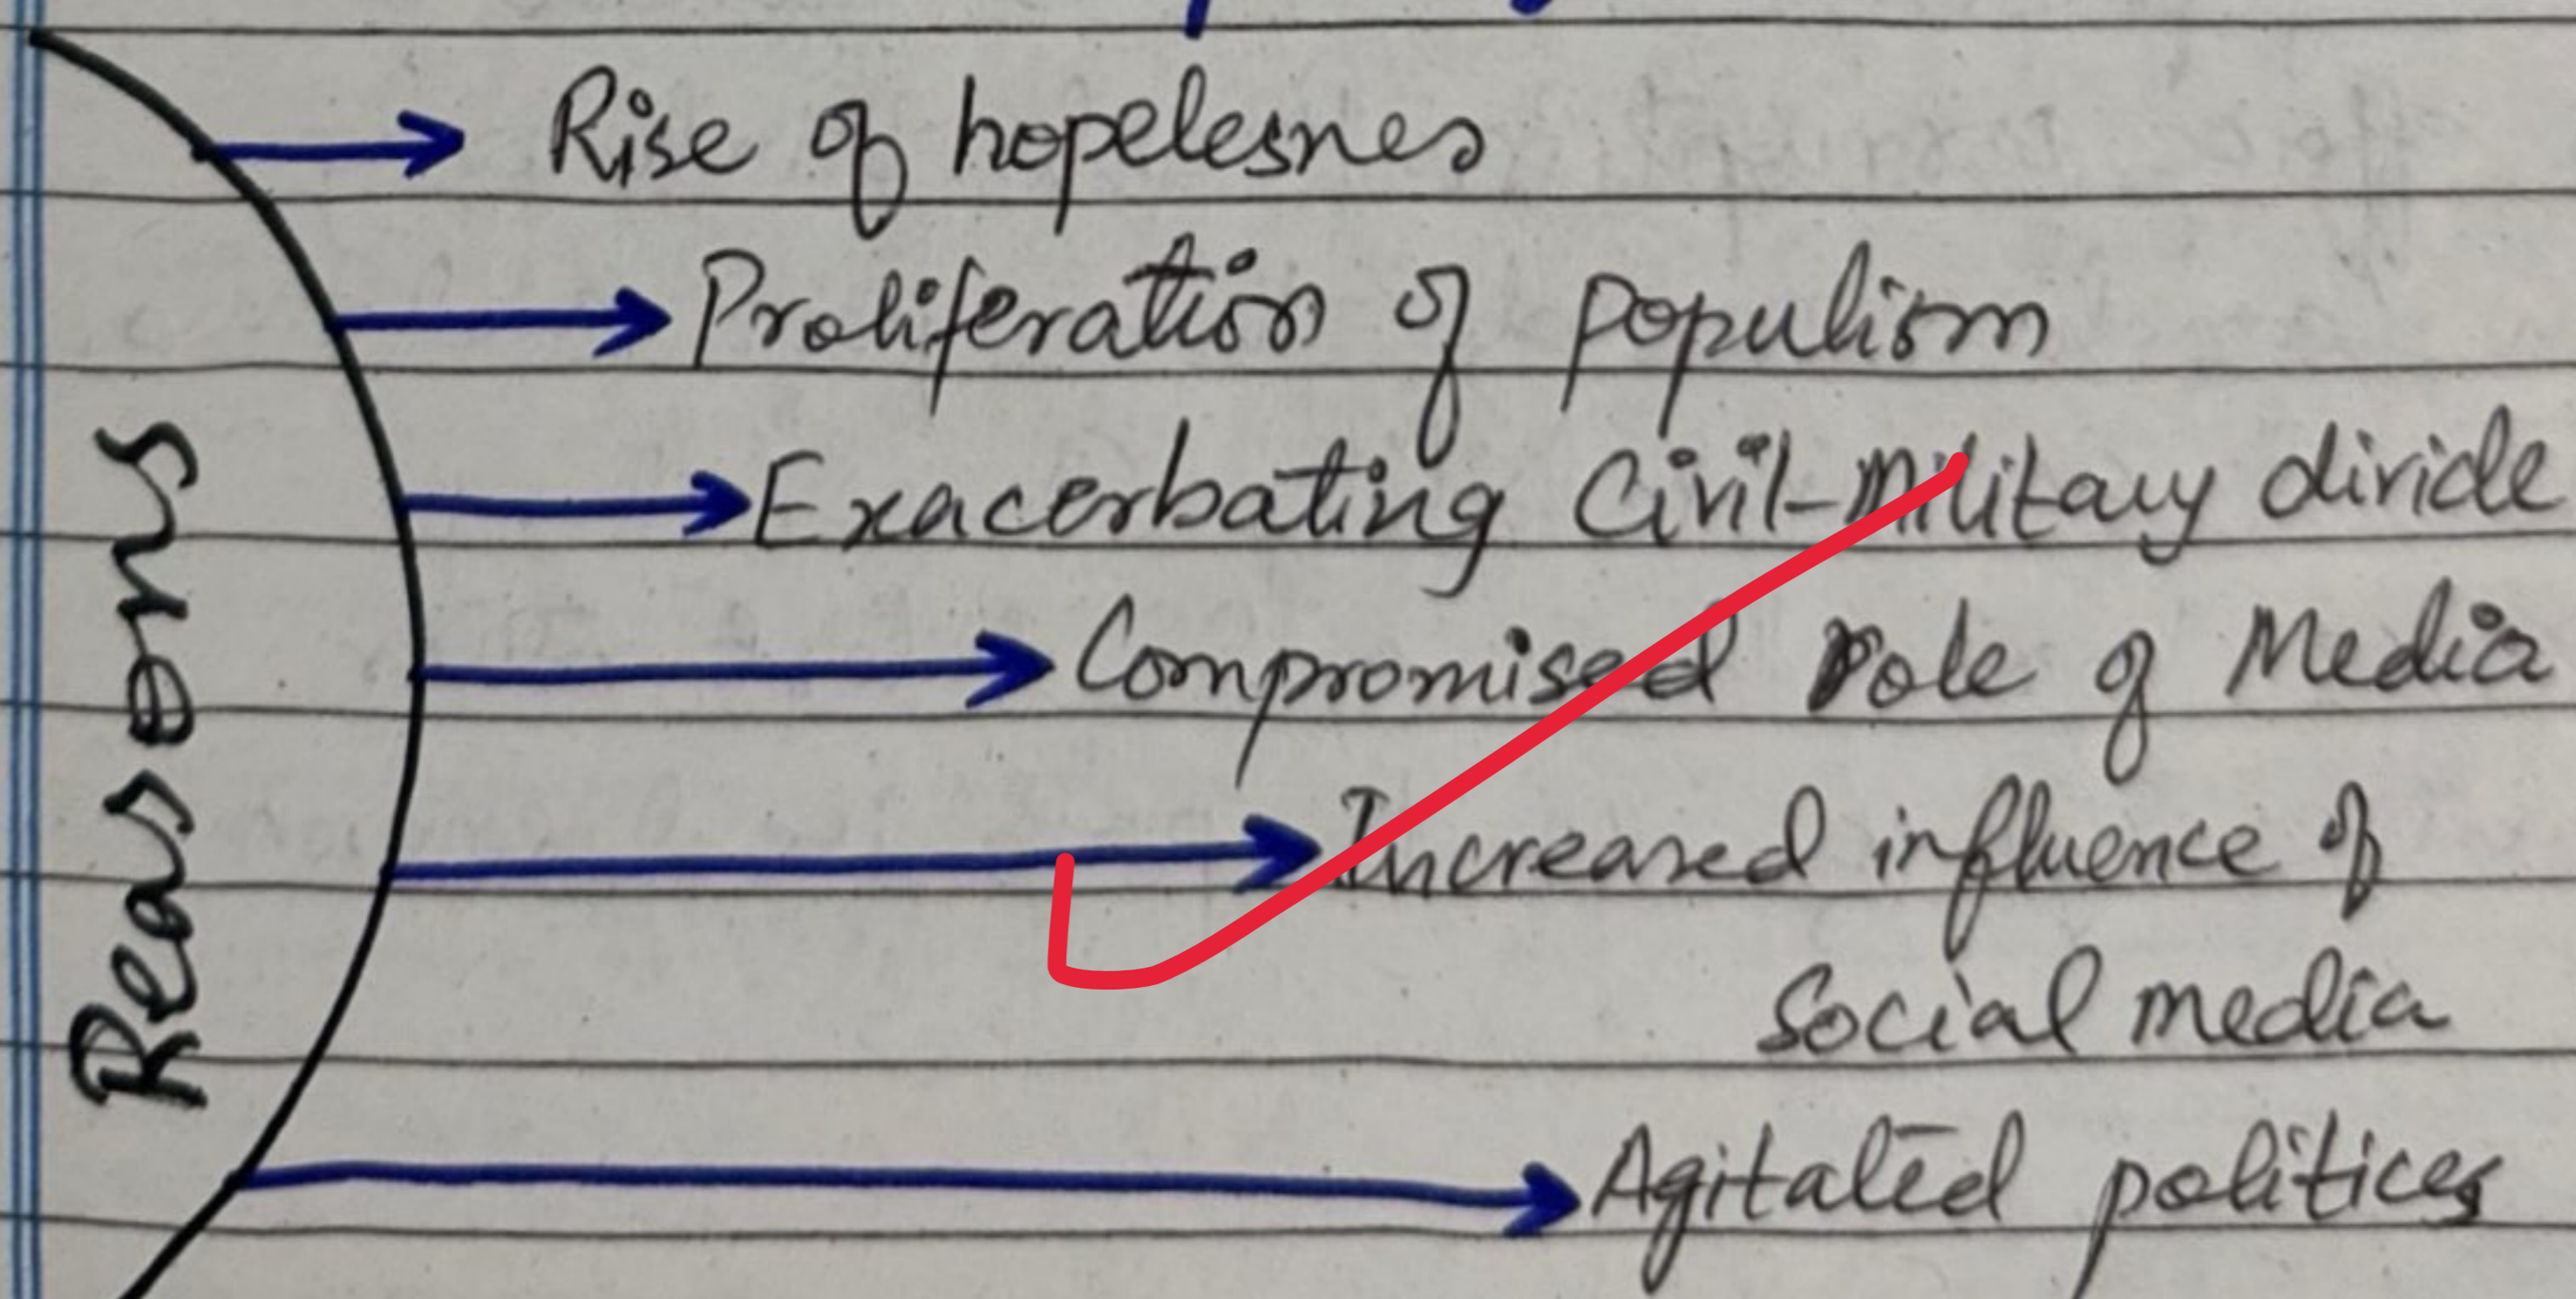 Reasons
Rise of hopelesnes
Proliferation of populism
Exacerbating Civil-Military divide
Compromised role of Media
Increased influence of
Social media
Agitated politices